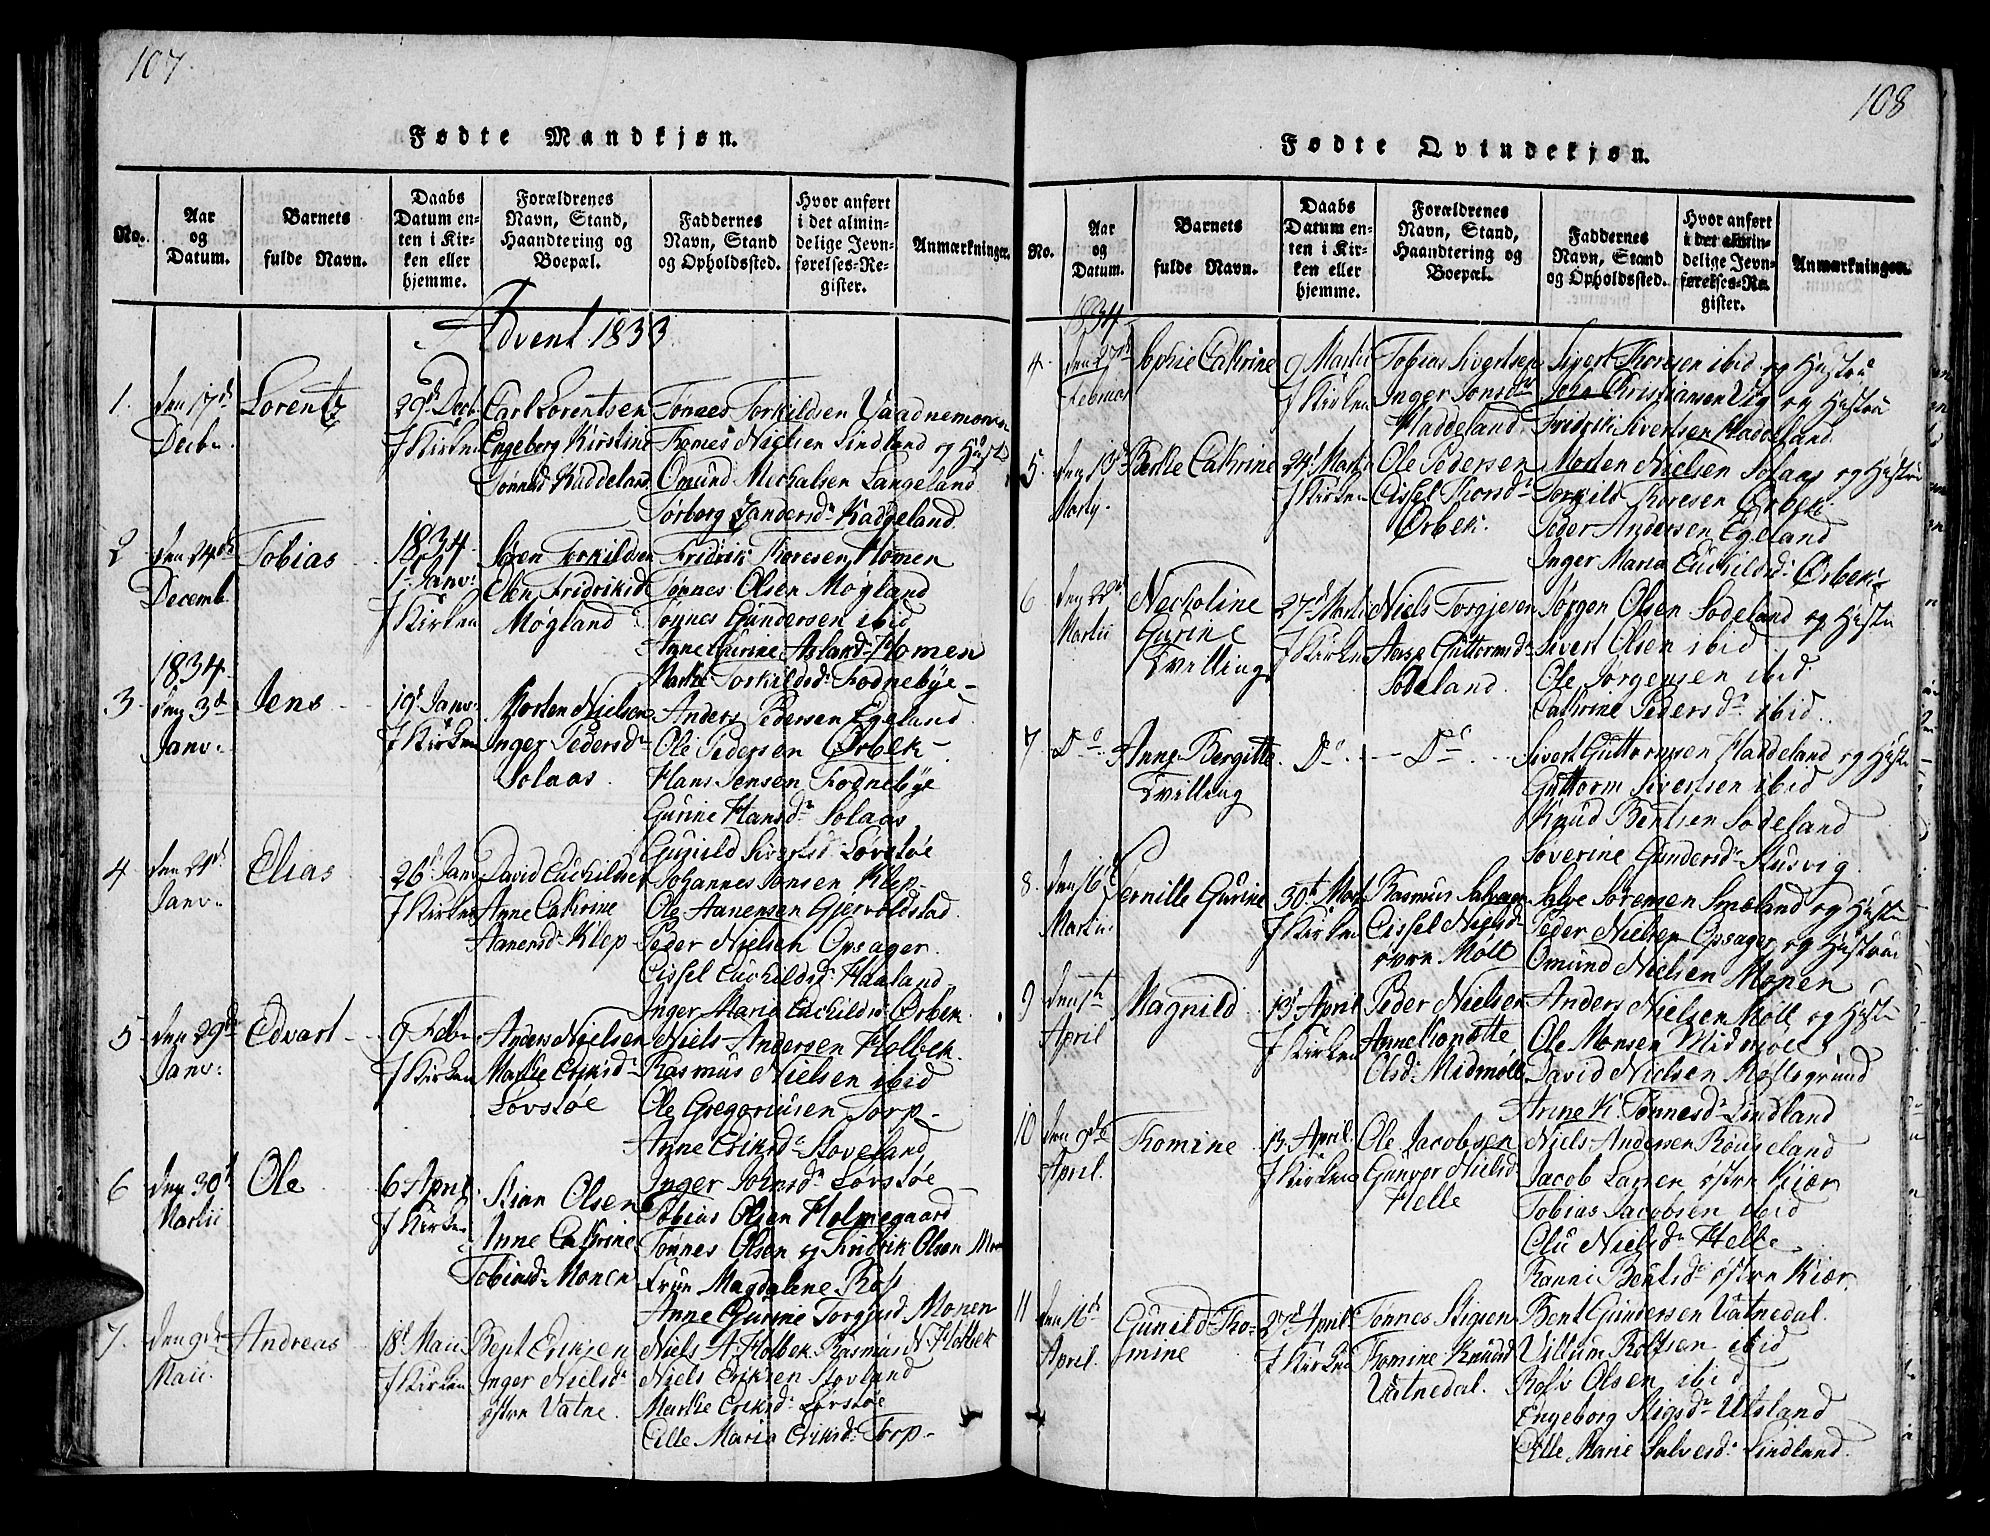 107.
Fødte Mandkjøn.
No.
Aar
og
Datum.
Barnets
fulde Navn.
Daabs
Datum en-
ten i Kir-
ken eller
hjemme.
Forældrenes
Navn, Stand,
Haandtering og
Boepæl.
Faddernes
Navn, Stand
og Opholdssted.
Hvor anført
i det almin-
delige Jevn-
førelses-Re-
gister.
Anmærkninger.
Advent 1833
1.
den 17de
Decbr.
Lorentz
29d Decb
J Kirken
Carl Lorentsen
Engeborg Kirstine
Tønnesd. Kaddeland
Tønnes Torkildsen
Thomes Nielsen Lindland og Hust
Omund Michalsen Langeland
Kaddeland
2
den 24de
Decemb.
Tobias
1834.
1. Janv.
J Kirken
Søren Torkildsen
Elen Fridriksd
Møgland
Fridrik Thoresen Homen
Tønnes Olsen Møgland
Tønnes Gundersen ibid
Anne Gurine Aslandd. Homen
Marthe Torkildsd. Fodnebye
1834.
3.
den 3de
Janv.
Jens
19d Janv.
J Kirken
Morten Nielsen
Inger Pedersd.
Solaas
Anders Pedersen Egeland
Ole Pedersen Ørbek
Hans Jensen Fodnebye
Gurine Hansd. Solaas
Gunild Sivertsd. Løvstøe
4
Janv.
Elias
26d Janv
J Kirken
David Euchildsen
Anne Cathrine
Aanensd. Klep
Johannes Jensen Klep
Ole Aanensen Gjervoldstad
Peder Nielsen Opsager
Cissel Euchildsd. Haaland
Inger Maria Euchildsd. Ørbek
5
den 29de
Janv.
Edvart
9 Feb
J Kirken
Anders Nielsen
Marthe Eriksd.
Løvstøe
Niels Andersen Holbek
Rasmus Nielsen ibid
Ole Gregoriusen Torp
Anne Eriksd. Skoveland
Inger Løvstøe
6
den 30t
Martii
Ole
6 April
J Kirken
Stian Olsen
Anne Cathrine
Tobiasd. Monen
Tobias Olsen Holmegaard
Tønnes Olsen og Fridrik Olsen
Frue Magdalene
Anne Gurine Torgjusd Monen
7.
den 9de
Maii.
Andreas
18d Maii
J Kirken
Bent Eriksen
Inger Nielsd.
østre Vatne.
Niels A Holbek Rasmus N. Holbek
Niels Eriksen Skovland
Marthe Eriksd. Løvstøe
Cille Maria Eriksd. Torp
108
Fødte Qvindekjøn.
No.
Aar
og
Datum.
Barnets
fulde Navn.
Daabs
Datum en-
ten i Kir-
ken eller
hjemme.
Forældrenes
Navn, Stand,
Haandtering og
Boepæl.
Faddernes
Navn, Stand
og Opholdssted.
Hvor anført
i det almin-
delige Jevn-
førelses-Re-
gister.
Anmærkninger.
1834
4.
den 27de
Februar
Sophie Cathrine
9 Martii
J Kirken
Tobias Sivertsen
Inger Jonsd.
Haddeland
Sivert Thoresen ibid og Hustru
Christiansen og Hustru
Fridrik Sivertsen Haddeland
5.
Berthe Cathrine
24d Martii
J Kirken
Ole Pedersen
Cissel Thorsd.
Ørbek.
Morten Nielsen Solaas og Hustru
Torkild Thoresen Ørbek
Peder Andersen Egeland
Inger Maria Euchildsd. Ørbek
6
Martii
Nicholine
Gurine
Tvilling
27d Martii
J Kirken
Niels Torgjesen
Aase Guttormsd.
Sodeland
Jørgen Olsen Sodeland og Hustru
Sivert Olsen ibid
Ole Jørgensen ibid
Cathrine Pedersd. ibid
7
Do
Anne Bergitte
Tvilling
Do
Do
Sivert Guttormsen Haddeland og Hustr
Guttorm Sivertsen ibid
Knud Bentsen Sodeland
Severine Gundersd.
8
den 16de
Martii
Pernille Gurine
30t Mart
J Kirken
Rasmus Salvesen
Cissel Nielsd
Møll
Salve Sørensen Smeland og Hustru
Peder Nielsen Opsager og Hustru
Omund Nielsen Monen
9
April
Magnild
13d April
J Kirken
Peder Nielsen
Anne
Olsd. Midmøll
Anders Nielsen Møll og Hustr
Ole Monsen Midmøe
David Nielsen Mollsgrund
Anne K. Tønnesd. Lindland
10
den 9de
April.
Thomine
13 April
J Kirken
Ole Jacobsen
Gunvor Nielsd
Helle
Niels Andersen
Jacob Larsen østre Kiær
Tobias Jacobsen ibid
Olu Nielsd. Helle
Ranni Bentsd. østre Kiær
11
den 16de
April.
Gunild Tho-
mine
27d April.
J Kirken
Tønnes Stigsen
Thomine Knudsd
Vatnedal.
Bent Gundersen Vatnedal.
Villum Rolfsen ibid
Rolv Olsen ibid
Engeborg Stigsd. Utsland
Cille Marie Salvesd. Lindland.